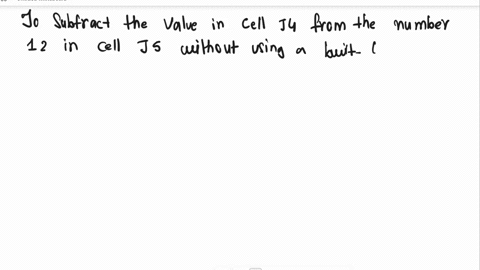 To Subtract the Value in Cell J4 from the number
12 in cell J5 without using a built (